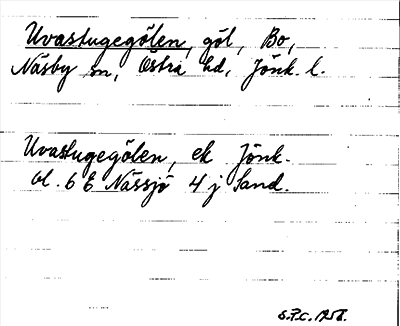 Uvastugegölen, göl, Bo,
Näsby sn, Östra hd, Jönk. l.
Uvastugegölen, ek Jönk.
bl. 6 E Nässjö 4 j Sand.
S.P.C. 1958.